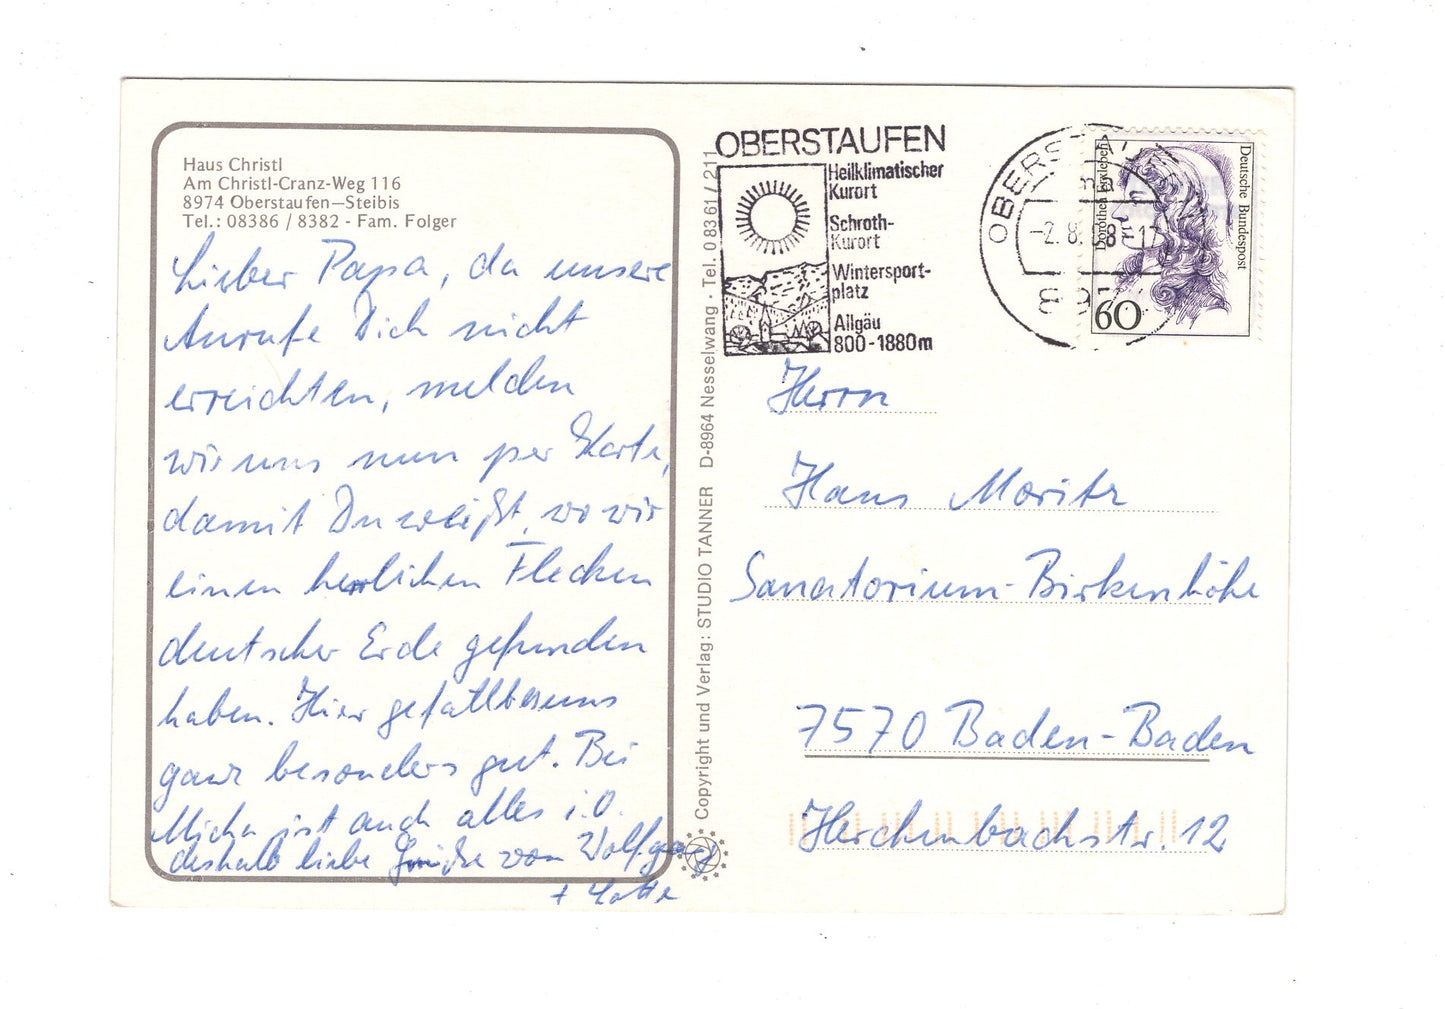 Haus Christl
Am Christl-Cranz-Weg 116
8974 Oberstaufen—Steibis
Tel.: 08386 / 8382 - Fam. Folger
Lieber Papa, da unsere
Anrufe Dich nicht
erreichten, melden
wir uns nun per Karte,
damit Du weißt, wo wir
einen herrlichen Flecken
deutscher Erde gefunden
haben. Hier gefällt es uns
ganz besonders gut. Bei
Micha ist auch alles i.O.
deshalb liebe Grüße von Wolfgang
+ Lotte
Copyright und Verlag: STUDIO TANNER D-8964 Nesselwang · Tel. 08361 / 211
OBERSTAUFEN
Heilklimatischer
Kurort
Schroth-
Kurort
Wintersport-
platz
Allgäu
800-1880m
OBERSTAUFEN
-2.8. 8-17
Dorothea Erxleben
Deutsche Bundespost
60
Herrn
Hans Moritz
Sanatorium-Birkenhöhe
7570 Baden-Baden
Herchenbachstr. 12